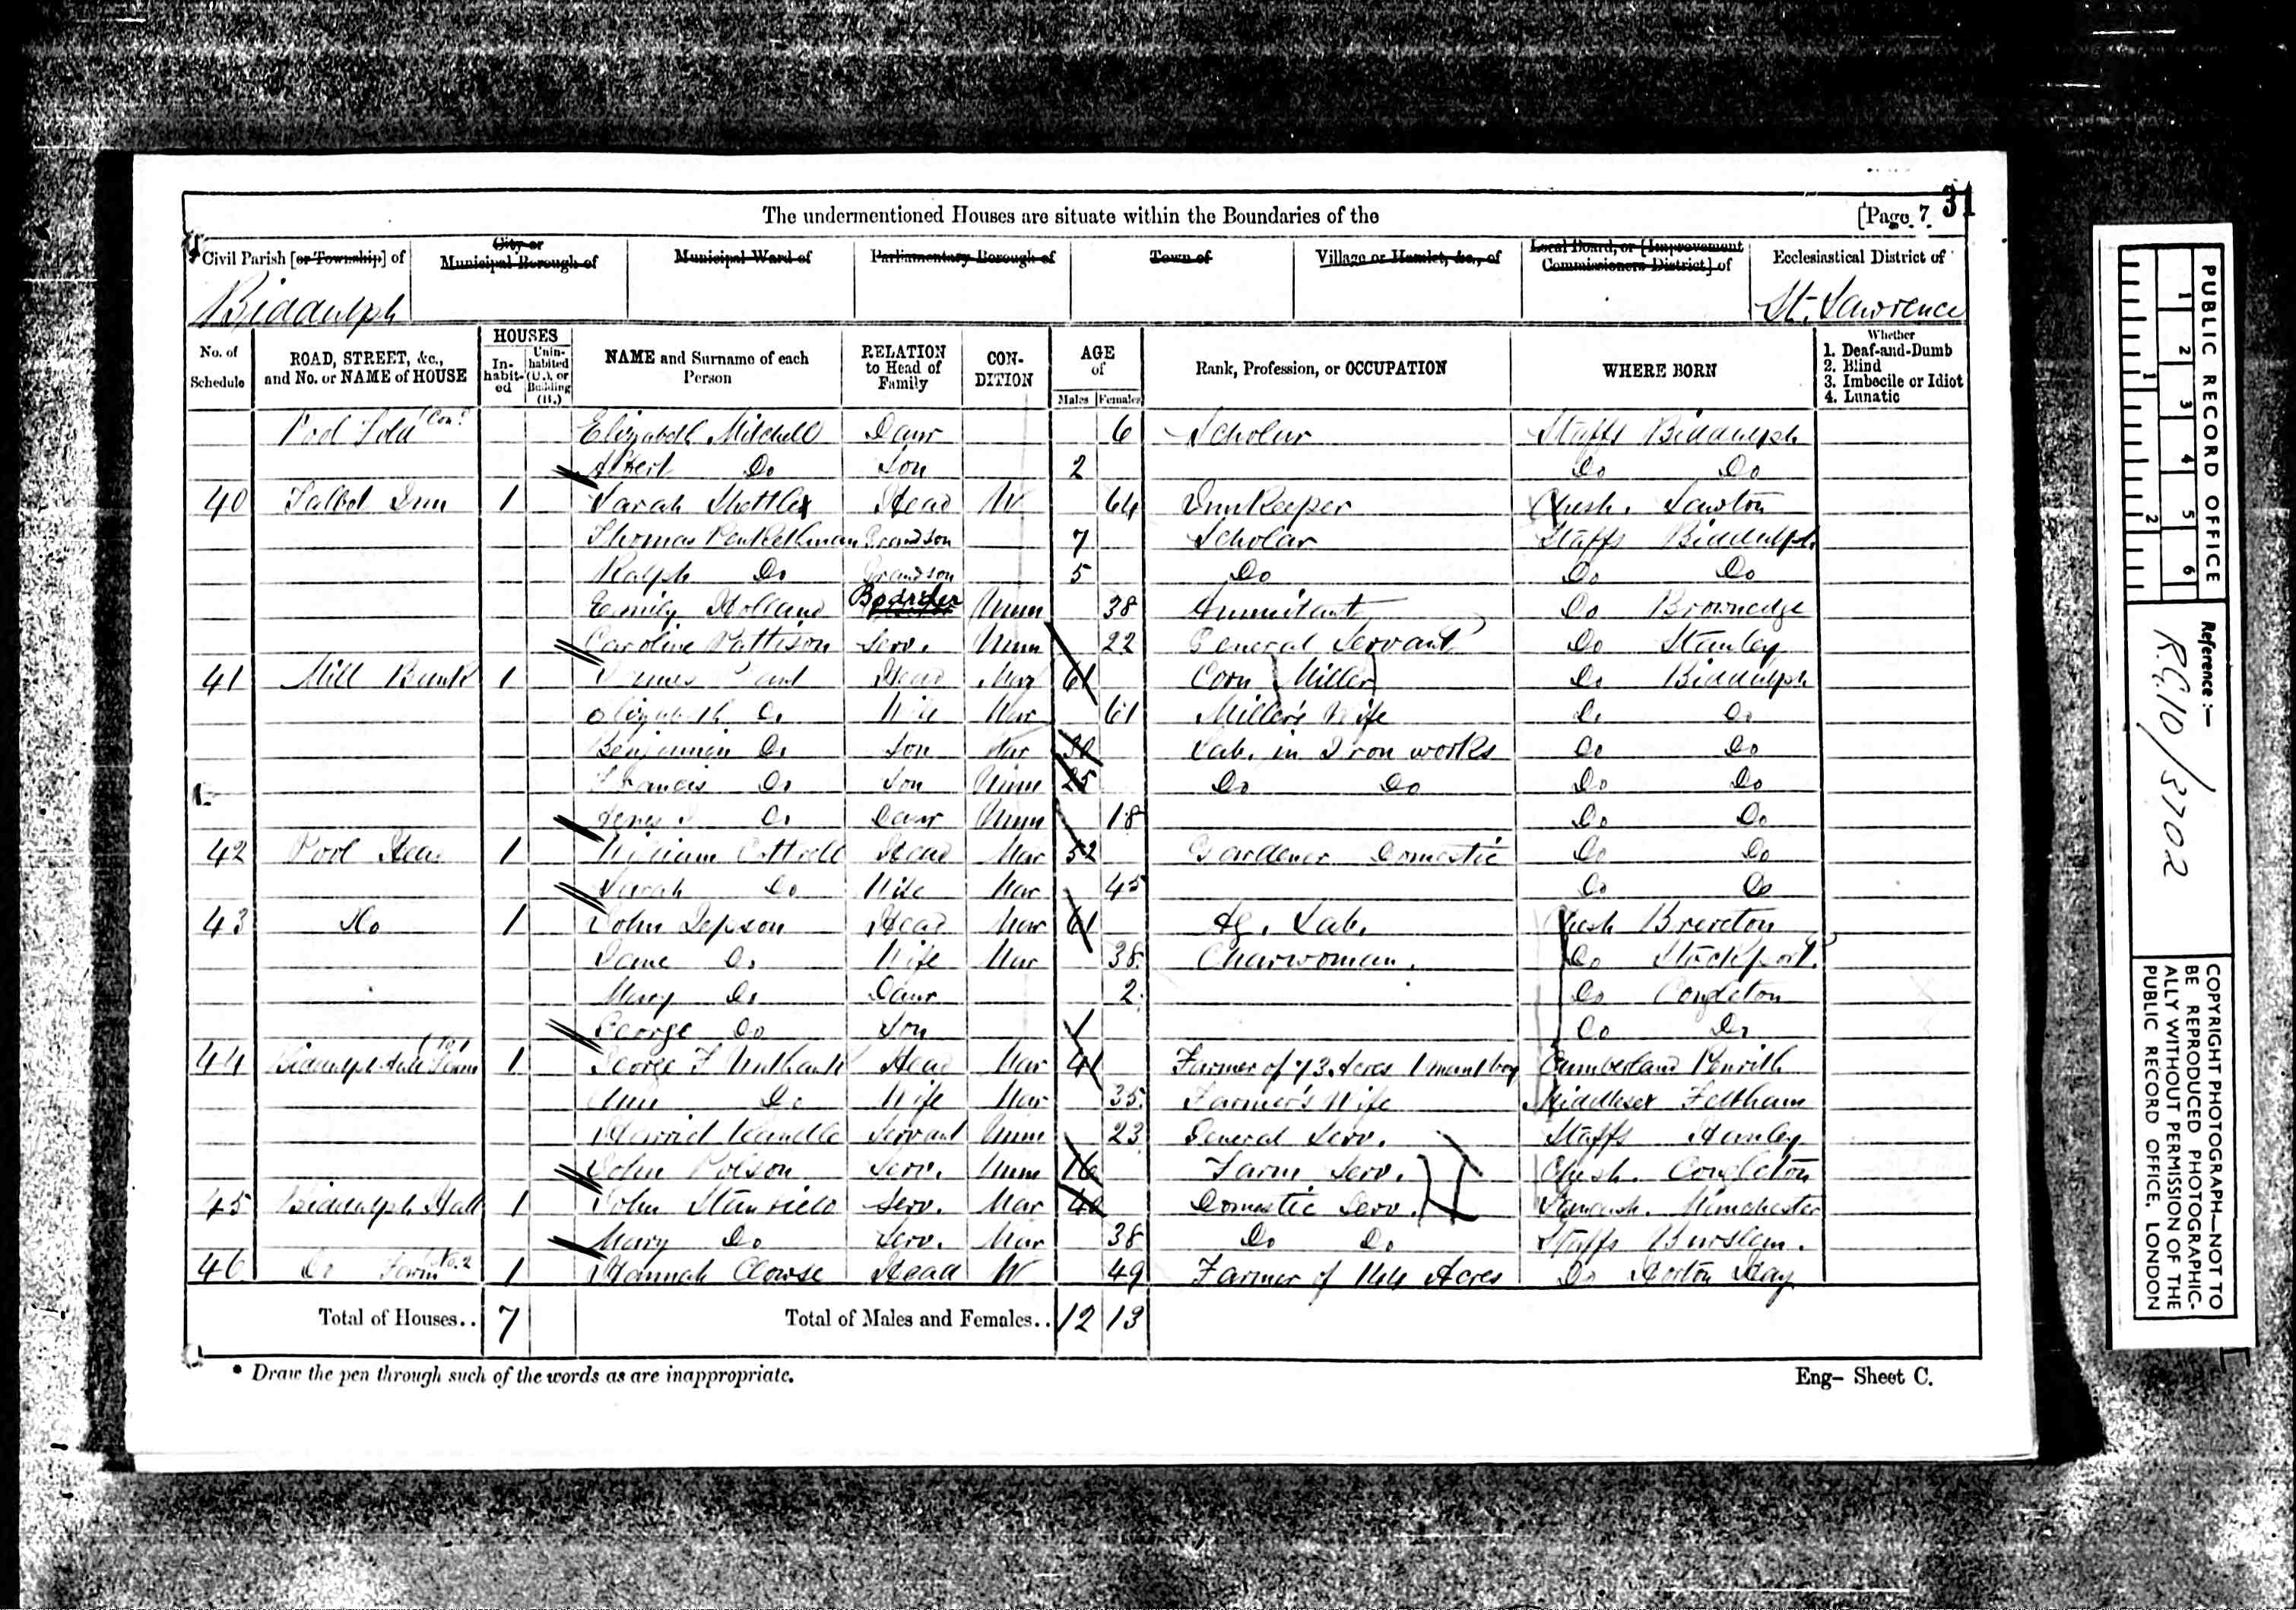 31
The undermentioned Houses are situate within the Boundaries of the [Page 7
Civil Parish [or Township] of City or Municipal Borough of Municipal Ward of Parliamentary Borough of Town of Village or Hamlet, &c., of Local Board, or [Improvement Commissioners District] of Ecclesiastical District of
Biddulph St. Lawrence
No. of Schedule ROAD, STREET, &c., and No. or NAME of HOUSE HOUSES Inhabited Uninhabited (U.), or Building (B.) NAME and Surname of each Person RELATION to Head of Family CONDITION AGE of Males Females Rank, Profession, or OCCUPATION WHERE BORN Whether 1. Deaf-and-Dumb 2. Blind 3. Imbecile or Idiot 4. Lunatic
Pool Fold Con. Elizabeth Mitchell Daur 6 Scholar Staffs Biddulph
Albert Do Son 2 Do Do
40 Talbot Inn 1 Sarah Head W 64 Innkeeper Chesh. Lawton
Thomas Penkethman Grandson 7 Scholar Staffs Biddulph
Ralph Do Grandson 5 Do Do Do
Emily Holland Boarder Unm 38 Annuitant Do Brownedge
Caroline Pattison Serv. Unm 22 General Servant Do Stanley
41 Mill Bank 1 James Head Mar 61 Corn Miller Do Biddulph
Elizabeth Do Wife Mar 61 Miller's Wife Do Do
Benjamin Do Son Mar 30 Lab. in Iron works Do Do
Francis Do Son Unm 25 Do Do Do Do
Do Daur Unm 18 Do Do
42 Pool Head 1 William Cottrell Head Mar 52 Gardener Domestic Do Do
Sarah Do Wife Mar 45 Do Do
43 Do 1 John Jepson Head Mar 61 Ag. Lab. Chesh Brereton
Jane Do Wife Mar 38 Charwoman. Do Stockport
Mary Do Daur 2 Do Congleton
George Do Son 1 Do Do
44 Biddulph Hall Farm No 1 1 George F Unthank Head Mar 41 Farmer of 73 Acres 1 man 1 boy Cumberland Penrith
Ann Do Wife Mar 35 Farmer's Wife Middlesex Feltham
Harriet Servant Unm 23 General Serv. Staffs Hanley
John Polson Serv. Unm 16 Farm Serv. Chesh. Congleton
45 Biddulph Hall 1 John Stanfield Serv. Mar 40 Domestic Serv. Lancash. Manchester
Mary Do Serv. Mar 38 Do Do Staffs Burslem.
46 Do Farm No. 2 1 Hannah Clowse Head W 49 Farmer of 144 Acres Do Horton Hay
Total of Houses.. 7 Total of Males and Females.. 12 13
* Draw the pen through such of the words as are inappropriate. Eng- Sheet C.
PUBLIC RECORD OFFICE
1 2 3 4 5 6
1 2
Reference :-
R.G.10/3702
COPYRIGHT PHOTOGRAPH—NOT TO
BE REPRODUCED PHOTOGRAPHIC-
ALLY WITHOUT PERMISSION OF THE
PUBLIC RECORD OFFICE, LONDON